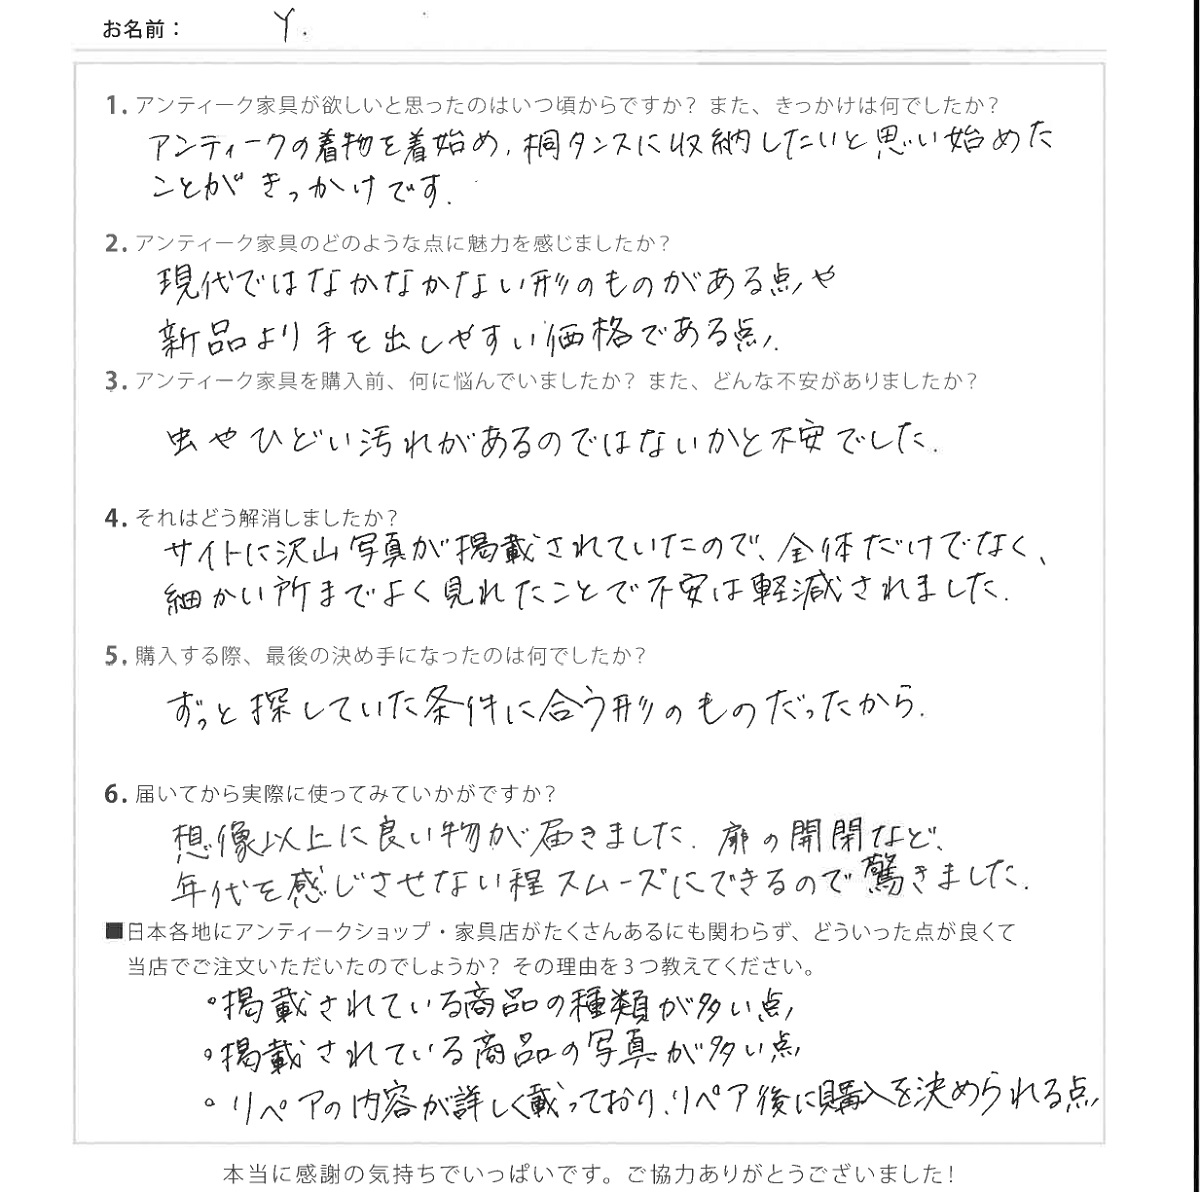 お名前： Y.
1. アンティーク家具が欲しいと思ったのはいつ頃からですか？ また、きっかけは何でしたか？
アンティークの着物を着始め、桐タンスに収納したいと思い始めた
ことがきっかけです.
2. アンティーク家具のどのような点に魅力を感じましたか？
現代ではなかなかない形のものがある点や
新品より手を出しやすい価格である点.
3. アンティーク家具を購入前、何に悩んでいましたか？ また、どんな不安がありましたか？
虫やひどい汚れがあるのではないかと不安でした.
4. それはどう解消しましたか？
サイトに沢山写真が掲載されていたので、全体だけでなく、
細かい所までよく見れたことで不安は軽減されました.
5. 購入する際、最後の決め手になったのは何でしたか？
ずっと探していた条件に合う形のものだったから.
6. 届いてから実際に使ってみていかがですか？
想像以上に良い物が届きました. 扉の開閉など、
年代を感じさせない程スムーズにできるので驚きました.
■日本各地にアンティークショップ・家具店がたくさんあるにも関わらず、どういった点が良くて
当店でご注文いただいたのでしょうか？ その理由を３つ教えてください。
・掲載されている商品の種類が多い点
・掲載されている商品の写真が多い点
・リペアの内容が詳しく載っており、リペア後に購入を決められる点
本当に感謝の気持ちでいっぱいです。ご協力ありがとうございました！